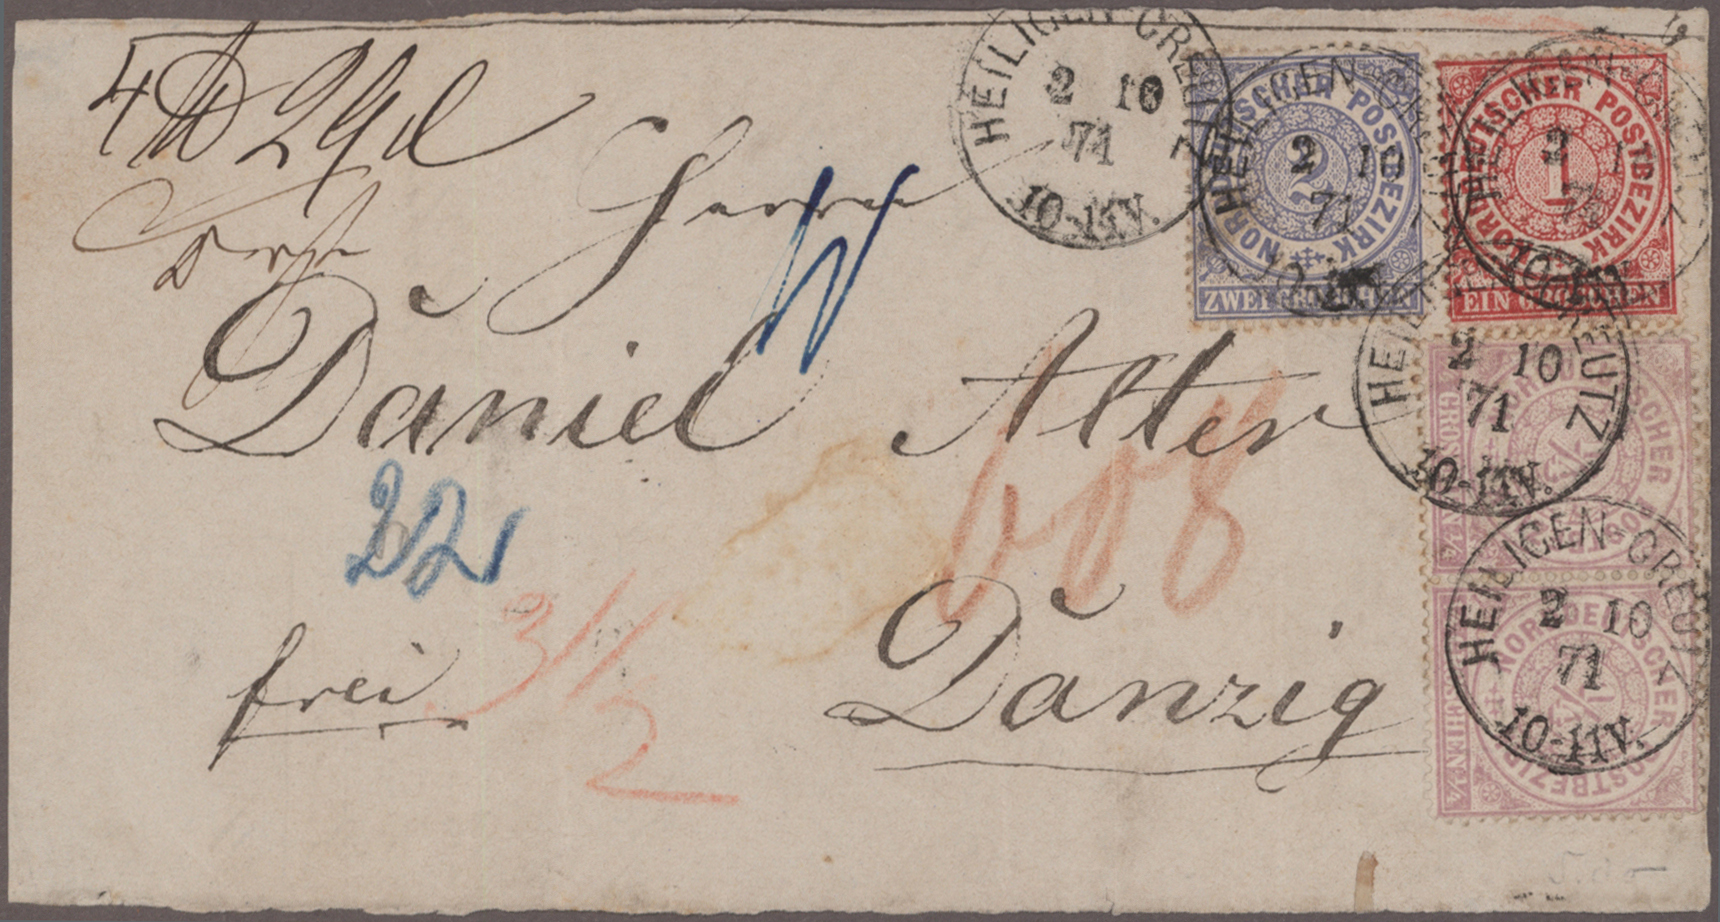 HEILIGEN-CREUTZ
2 10
71
10-11V.
NORDDEUTSCHER POSTBEZIRK
2
ZWEI GROSCHEN
HEILIGEN-CREUTZ
2 10
71
NORDDEUTSCHER POSTBEZIRK
1
EIN GROSCHEN
HEILIGEN-CREUTZ
2
71
10-11V.
4 ℔ 29
Herrn
Daniel Alter
HEILIGEN-CREUTZ
2 10
71
10-11V.
NORDDEUTSCHER POSTBEZIRK
1/4
22
608
frei
3 1/2
Danzig
HEILIGEN-CREUTZ
2 10
71
10-11V.
NORDDEUTSCHER POSTBEZIRK
1/4